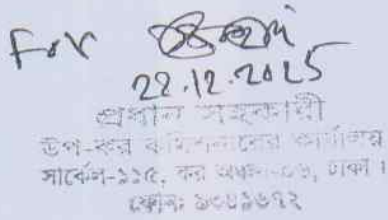 For
22.12.2025
প্রধান সহকারী
উপ-কর কমিশনারের কার্যালয়
সার্কেল-১১৫, কর অঞ্চল-০৬, ঢাকা।
ফোনঃ